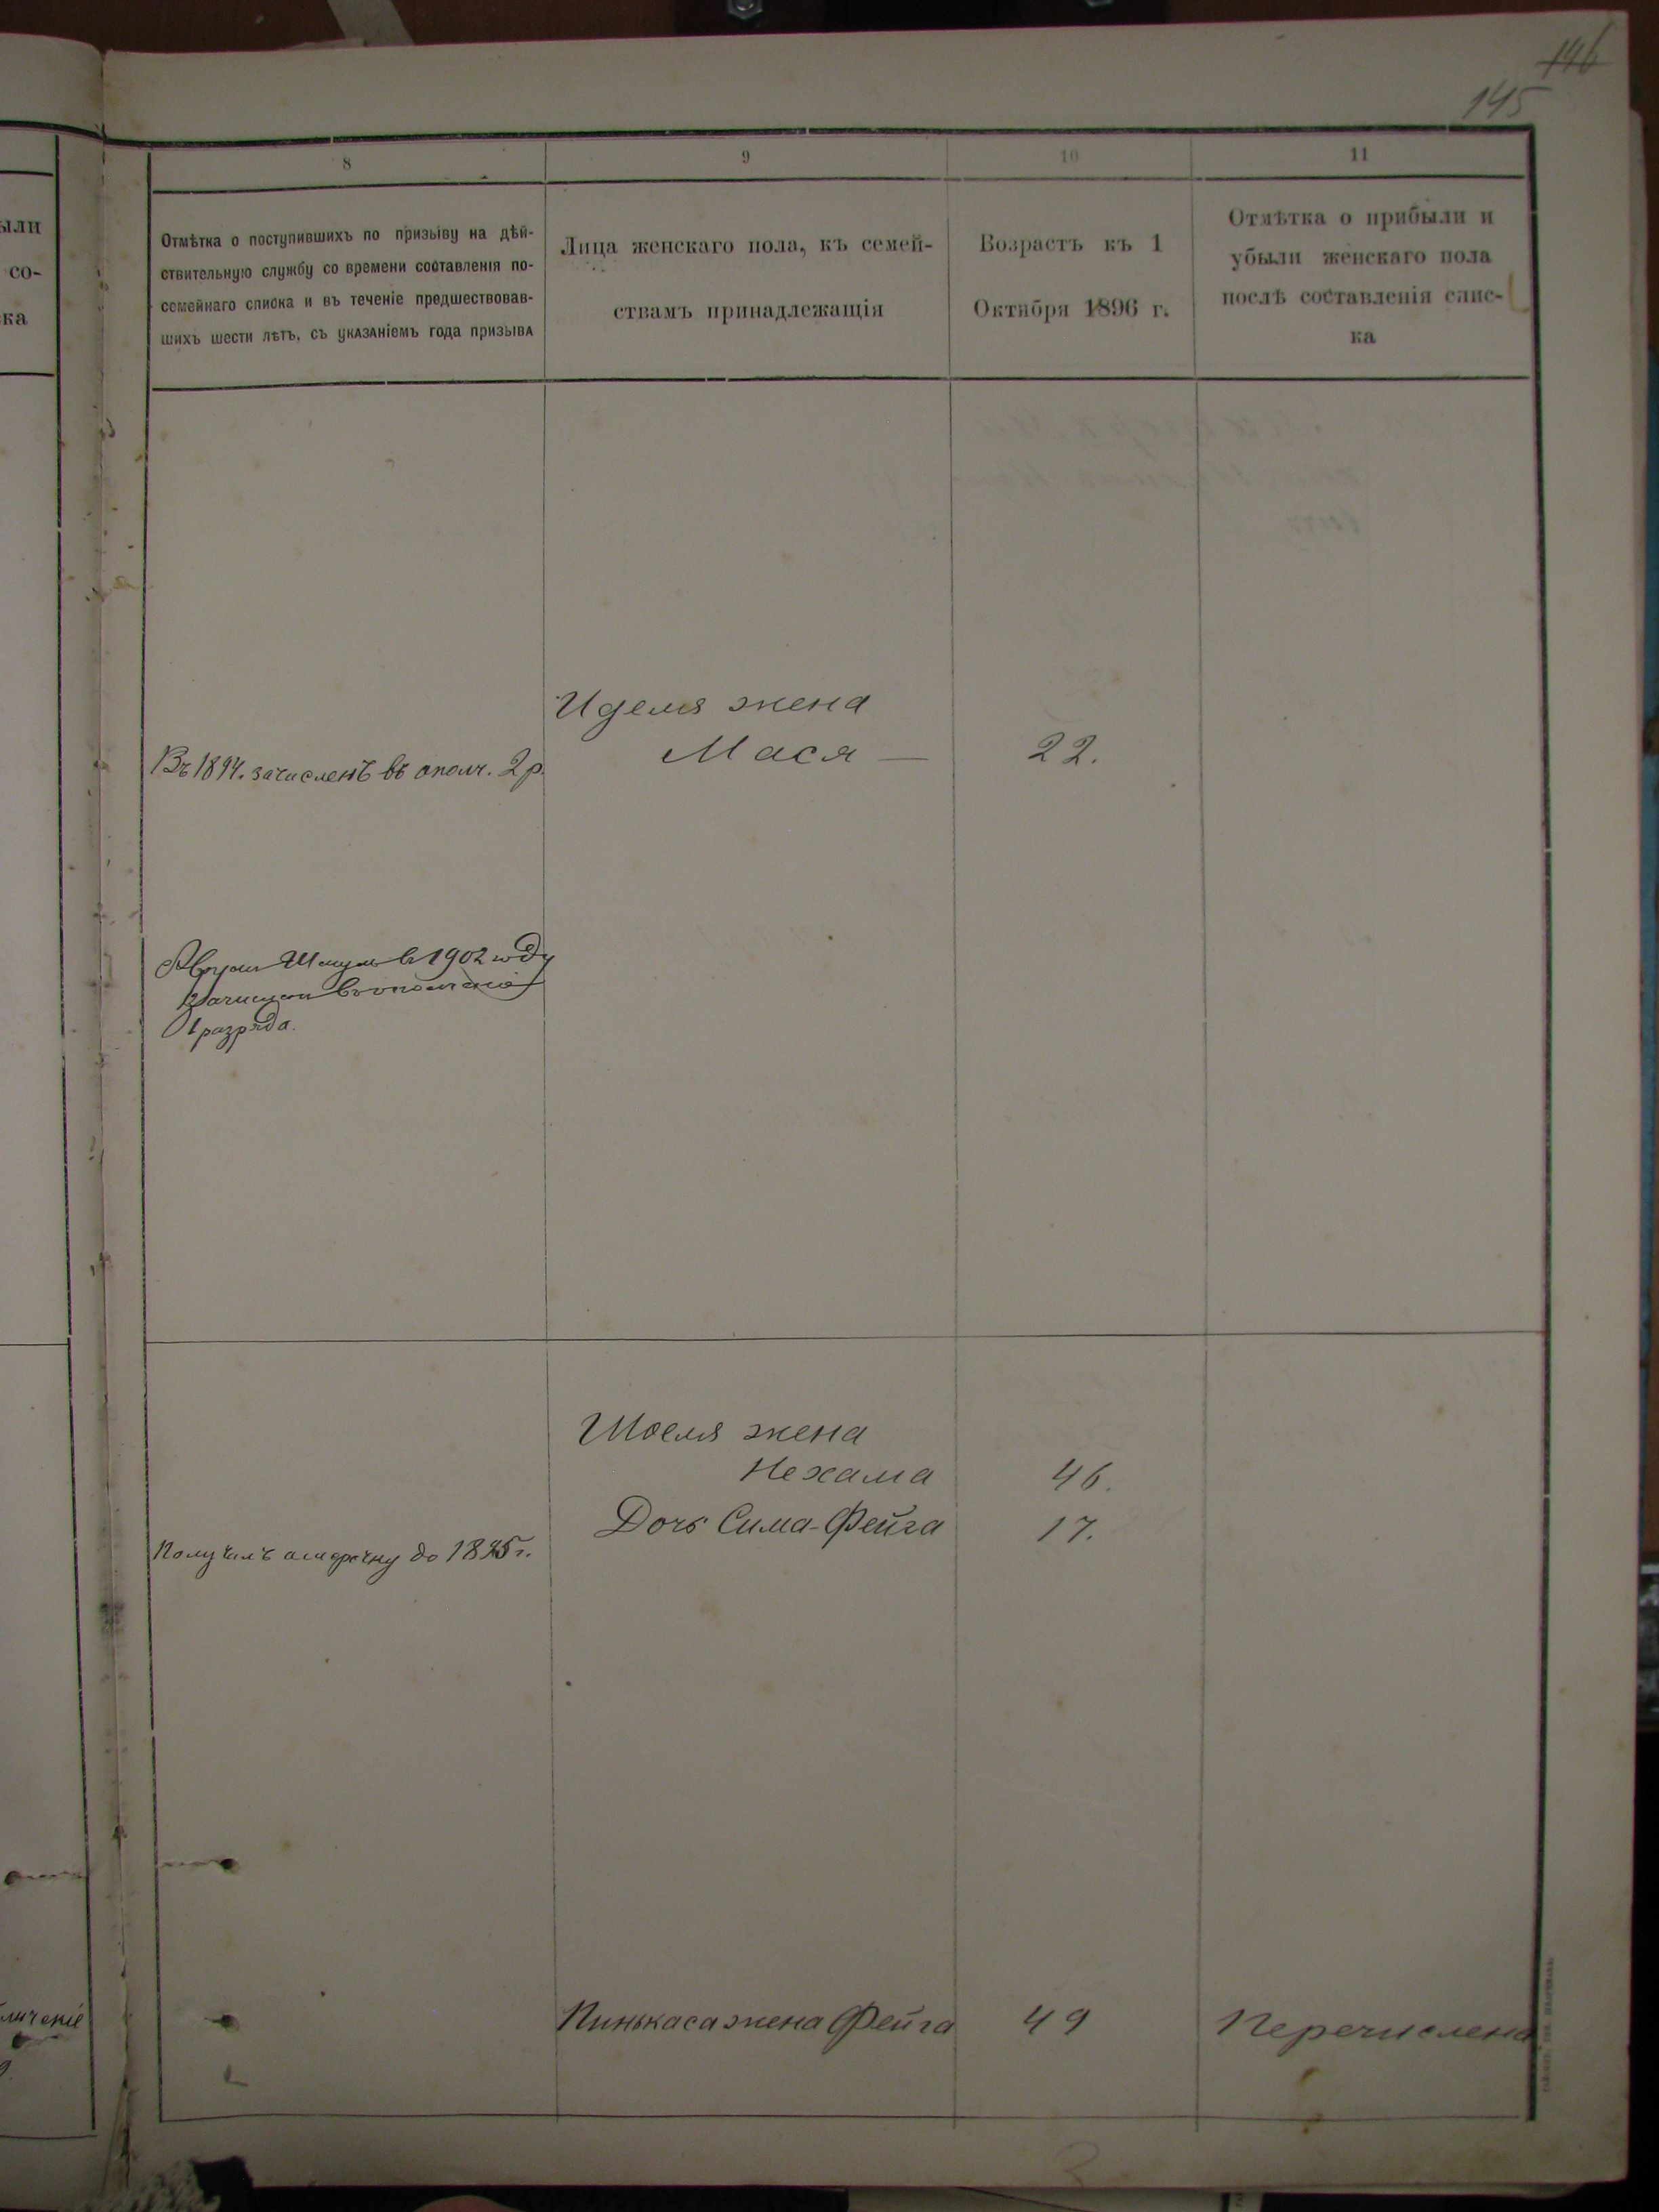 146
145
8
9
10
11
ыли
со-
ка
Отмѣтка о поступившихъ по призыву на дѣй-
ствительную службу со времени составленія по-
семейнаго списка и въ теченіе предшествовав-
шихъ шести лѣтъ, съ указаніемъ года призыва
Лица женскаго пола, къ семей-
ствамъ принадлежащія
Возрастъ къ 1
Октября 1896 г.
Отмѣтка о прибыли и
убыли женскаго пола
послѣ составленія спис-
ка
Въ 1894. зачисленъ въ ополч. 2 р.
Иделя жена
Мася —
22.
в 1902 году
1 разряда.
Шоеля жена
Нехама
46.
Дочь Сима-Фейга
17.
Получилъ отсрочку до 1895 г.
Пинькаса жена Фейга
49
Перечислена